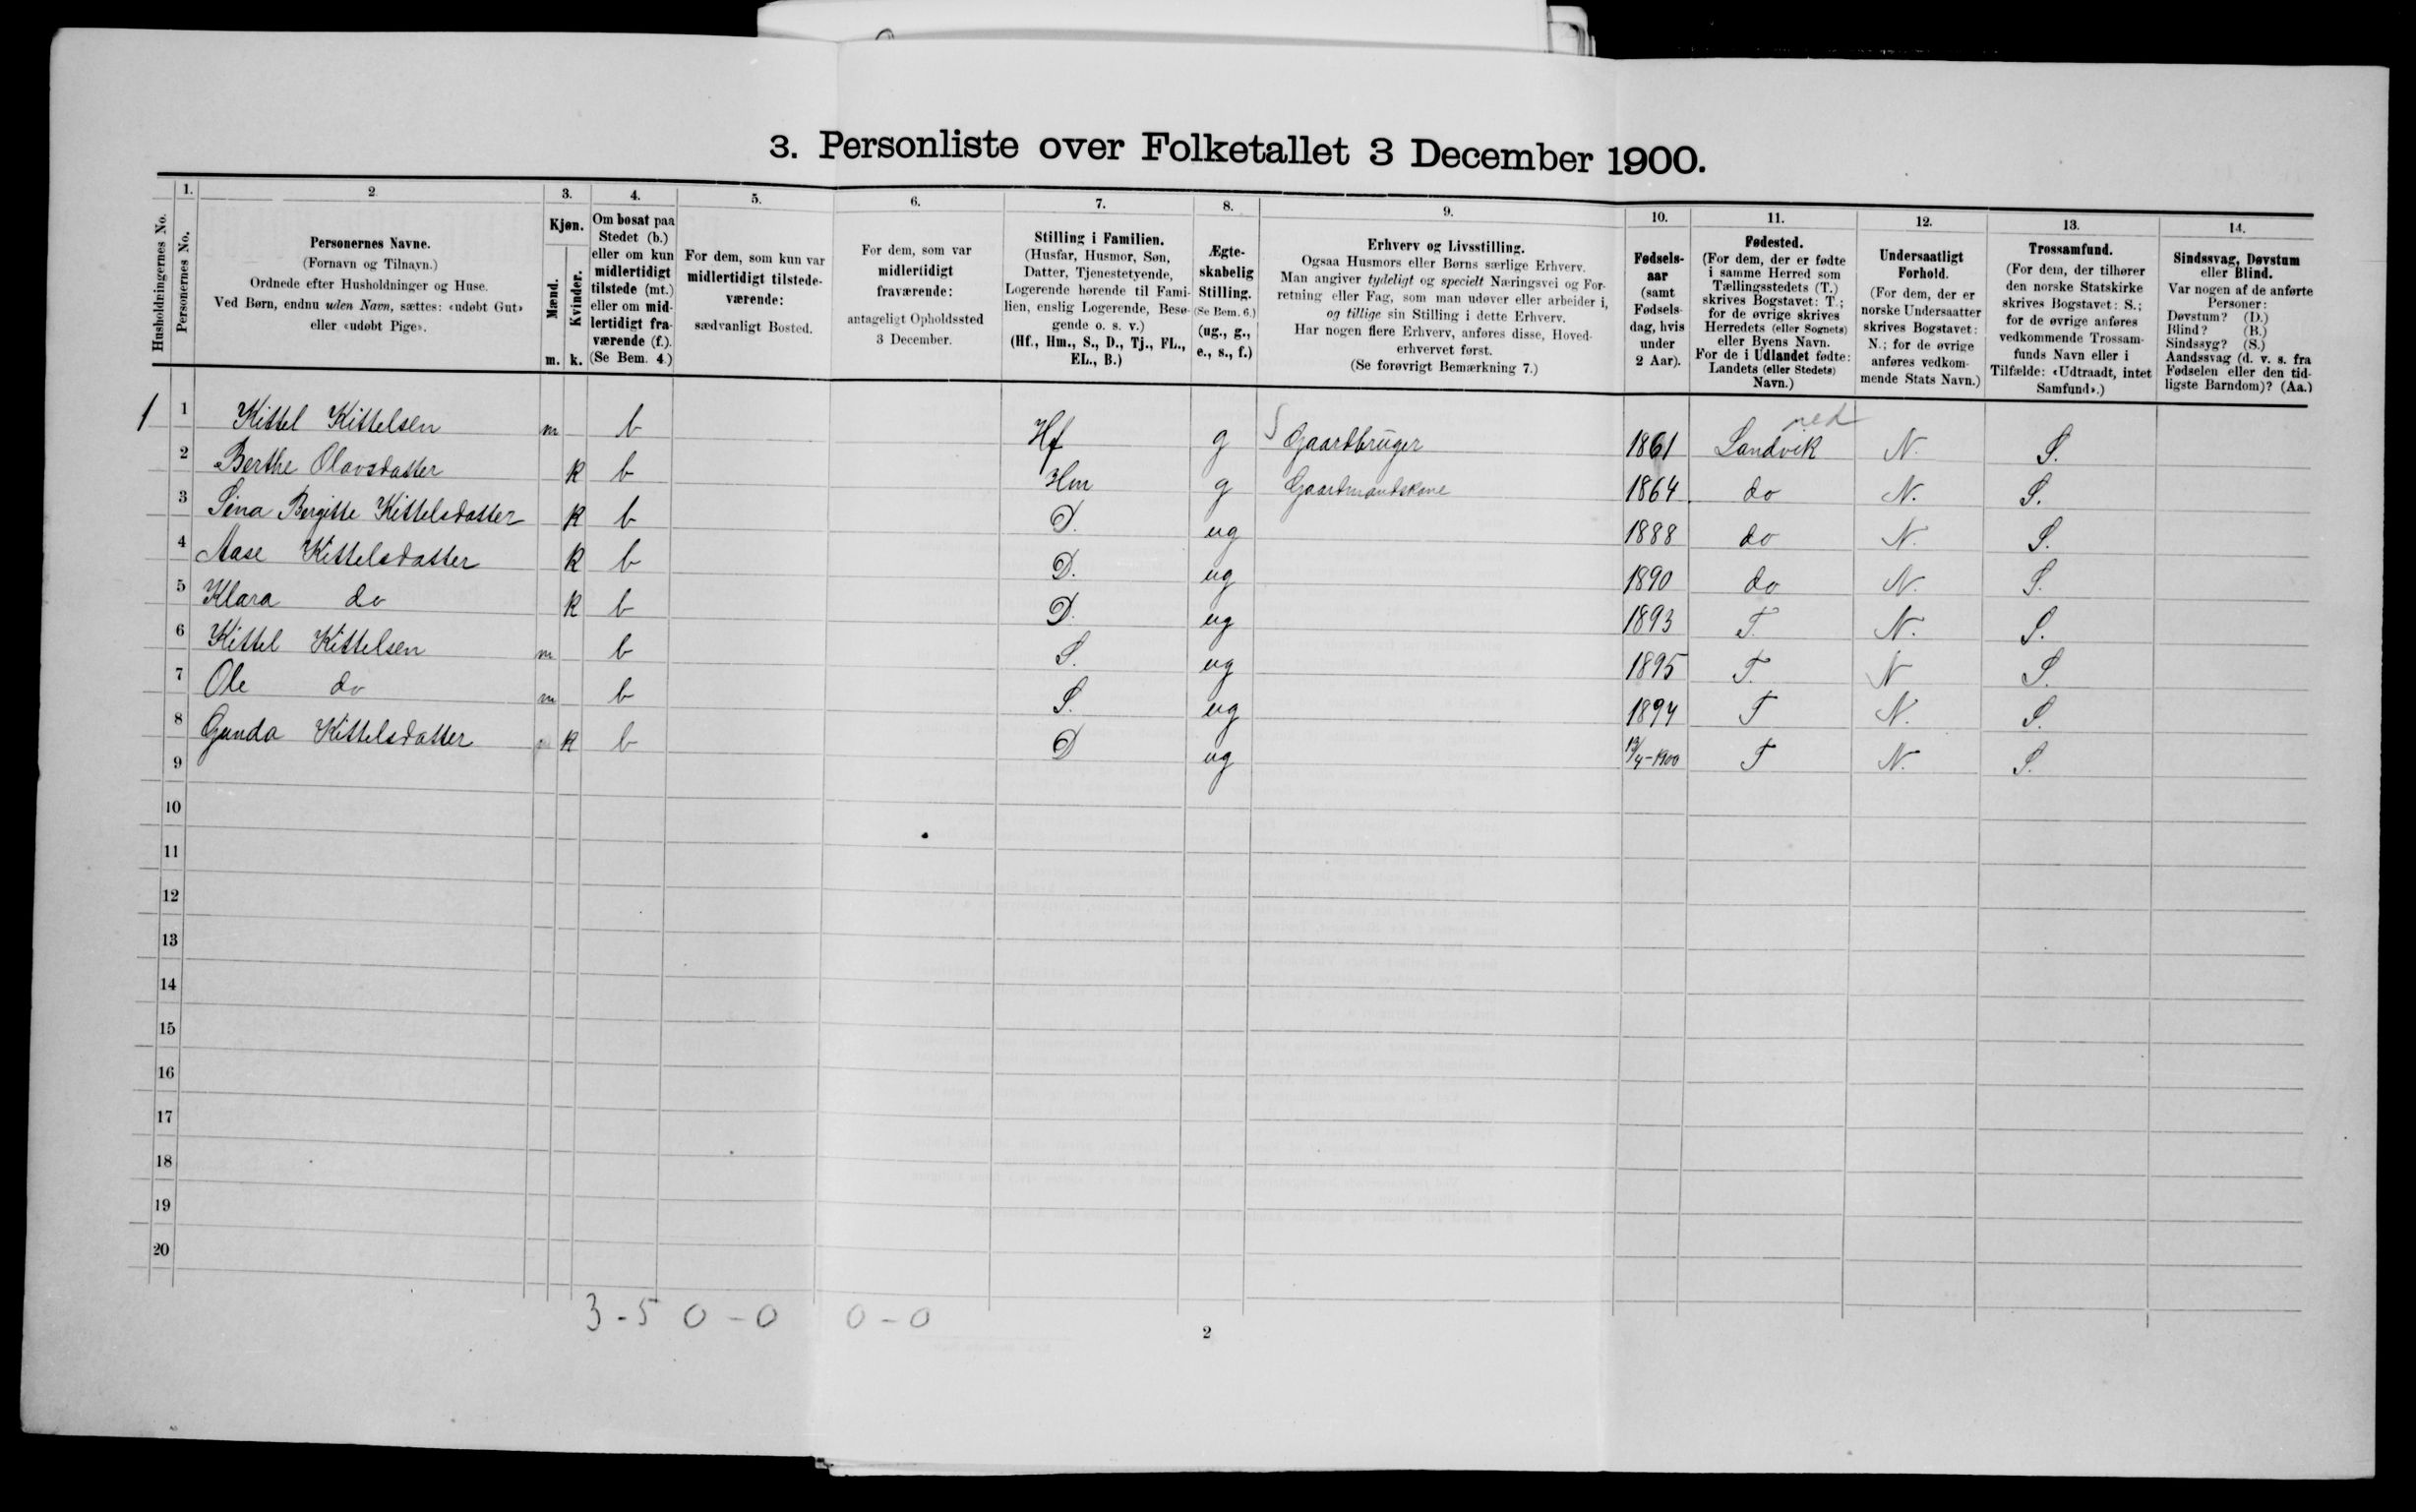 3. Personliste over Folketallet 3 December 1900.
1. 2 3. 4. 5. 6. 7. 8. 9. 10. 11. 12. 13. 14.
Husholdningernes No.
Personernes No.
Personernes Navne.
(Fornavn og Tilnavn.)
Ordnede efter Husholdninger og Huse.
Ved Børn, endnu uden Navn, sættes: «udøbt Gut»
eller «udøbt Pige».
Kjøn.
Mænd.
Kvinder.
m. k.
Om bosat paa
Stedet (b.)
eller om kun
midlertidigt
tilstede (mt.)
eller om mid-
lertidigt fra-
værende (f.).
(Se Bem. 4.)
For dem, som kun var
midlertidigt tilstede-
værende:
sædvanligt Bosted.
For dem, som var
midlertidigt
fraværende:
antageligt Opholdssted
3 December.
Stilling i Familien.
(Husfar, Husmor, Søn,
Datter, Tjenestetyende,
Logerende hørende til Fami-
lien, enslig Logerende, Besø-
gende o. s. v.)
(Hf., Hm., S., D., Tj., FL.,
EL., B.)
Ægte-
skabelig
Stilling.
(Se Bem. 6.)
(ug., g.,
e., s., f.)
Erhverv og Livsstilling.
Ogsaa Husmors eller Børns særlige Erhverv.
Man angiver tydeligt og specielt Næringsvei og For-
retning eller Fag, som man udøver eller arbeider i,
og tillige sin Stilling i dette Erhverv.
Har nogen flere Erhverv, anføres disse, Hoved-
erhvervet først.
(Se forøvrigt Bemærkning 7.)
Fødsels-
aar
(samt
Fødsels-
dag, hvis
under
2 Aar).
Fødested.
(For dem, der er fødte
i samme Herred som
Tællingsstedets (T.)
skrives Bogstavet: T.;
for de øvrige skrives
Herredets (eller Sognets)
eller Byens Navn.
For de i Udlandet fødte:
Landets (eller Stedets)
Navn.)
Undersaatligt
Forhold.
(For dem, der er
norske Undersaatter
skrives Bogstavet:
N.; for de øvrige
anføres vedkom-
mende Stats Navn.)
Trossamfund.
(For dem, der tilhører
den norske Statskirke
skrives Bogstavet: S.;
for de øvrige anføres
vedkommende Trossam-
funds Navn eller i
Tilfælde: «Udtraadt, intet
Samfund».)
Sindssvag, Døvstum
eller Blind.
Var nogen af de anførte
Personer:
Døvstum? (D.)
Blind? (B.)
Sindssyg? (S.)
Aandssvag (d. v. s. fra
Fødselen eller den tid-
ligste Barndom)? (Aa.)
ned
1 1 Kittel Kittelsen m b Hf g Gaardbruger 1861 Landvik N. S.
2 Berthe Olavsdatter k b Hm g Gaardmandskone 1864. do N. S.
3 Sina Bergitte Kittelsdatter k b D. ug 1888 do N. S.
4 Aase Kittelsdatter k b D. ug 1890 do N. S.
5 Klara do k b D. ug 1893 T. N. S.
6 Kittel Kittelsen m b S. ug 1895 T. N S.
7 Ole do m b S. ug 1897 T N. S.
8 Gunda Kittelsdatter k b D ug 13/4-1900 T N. S.
9
10
11
12
13
14
15
16
17
18
19
20
3-5 0-0 0-0
2